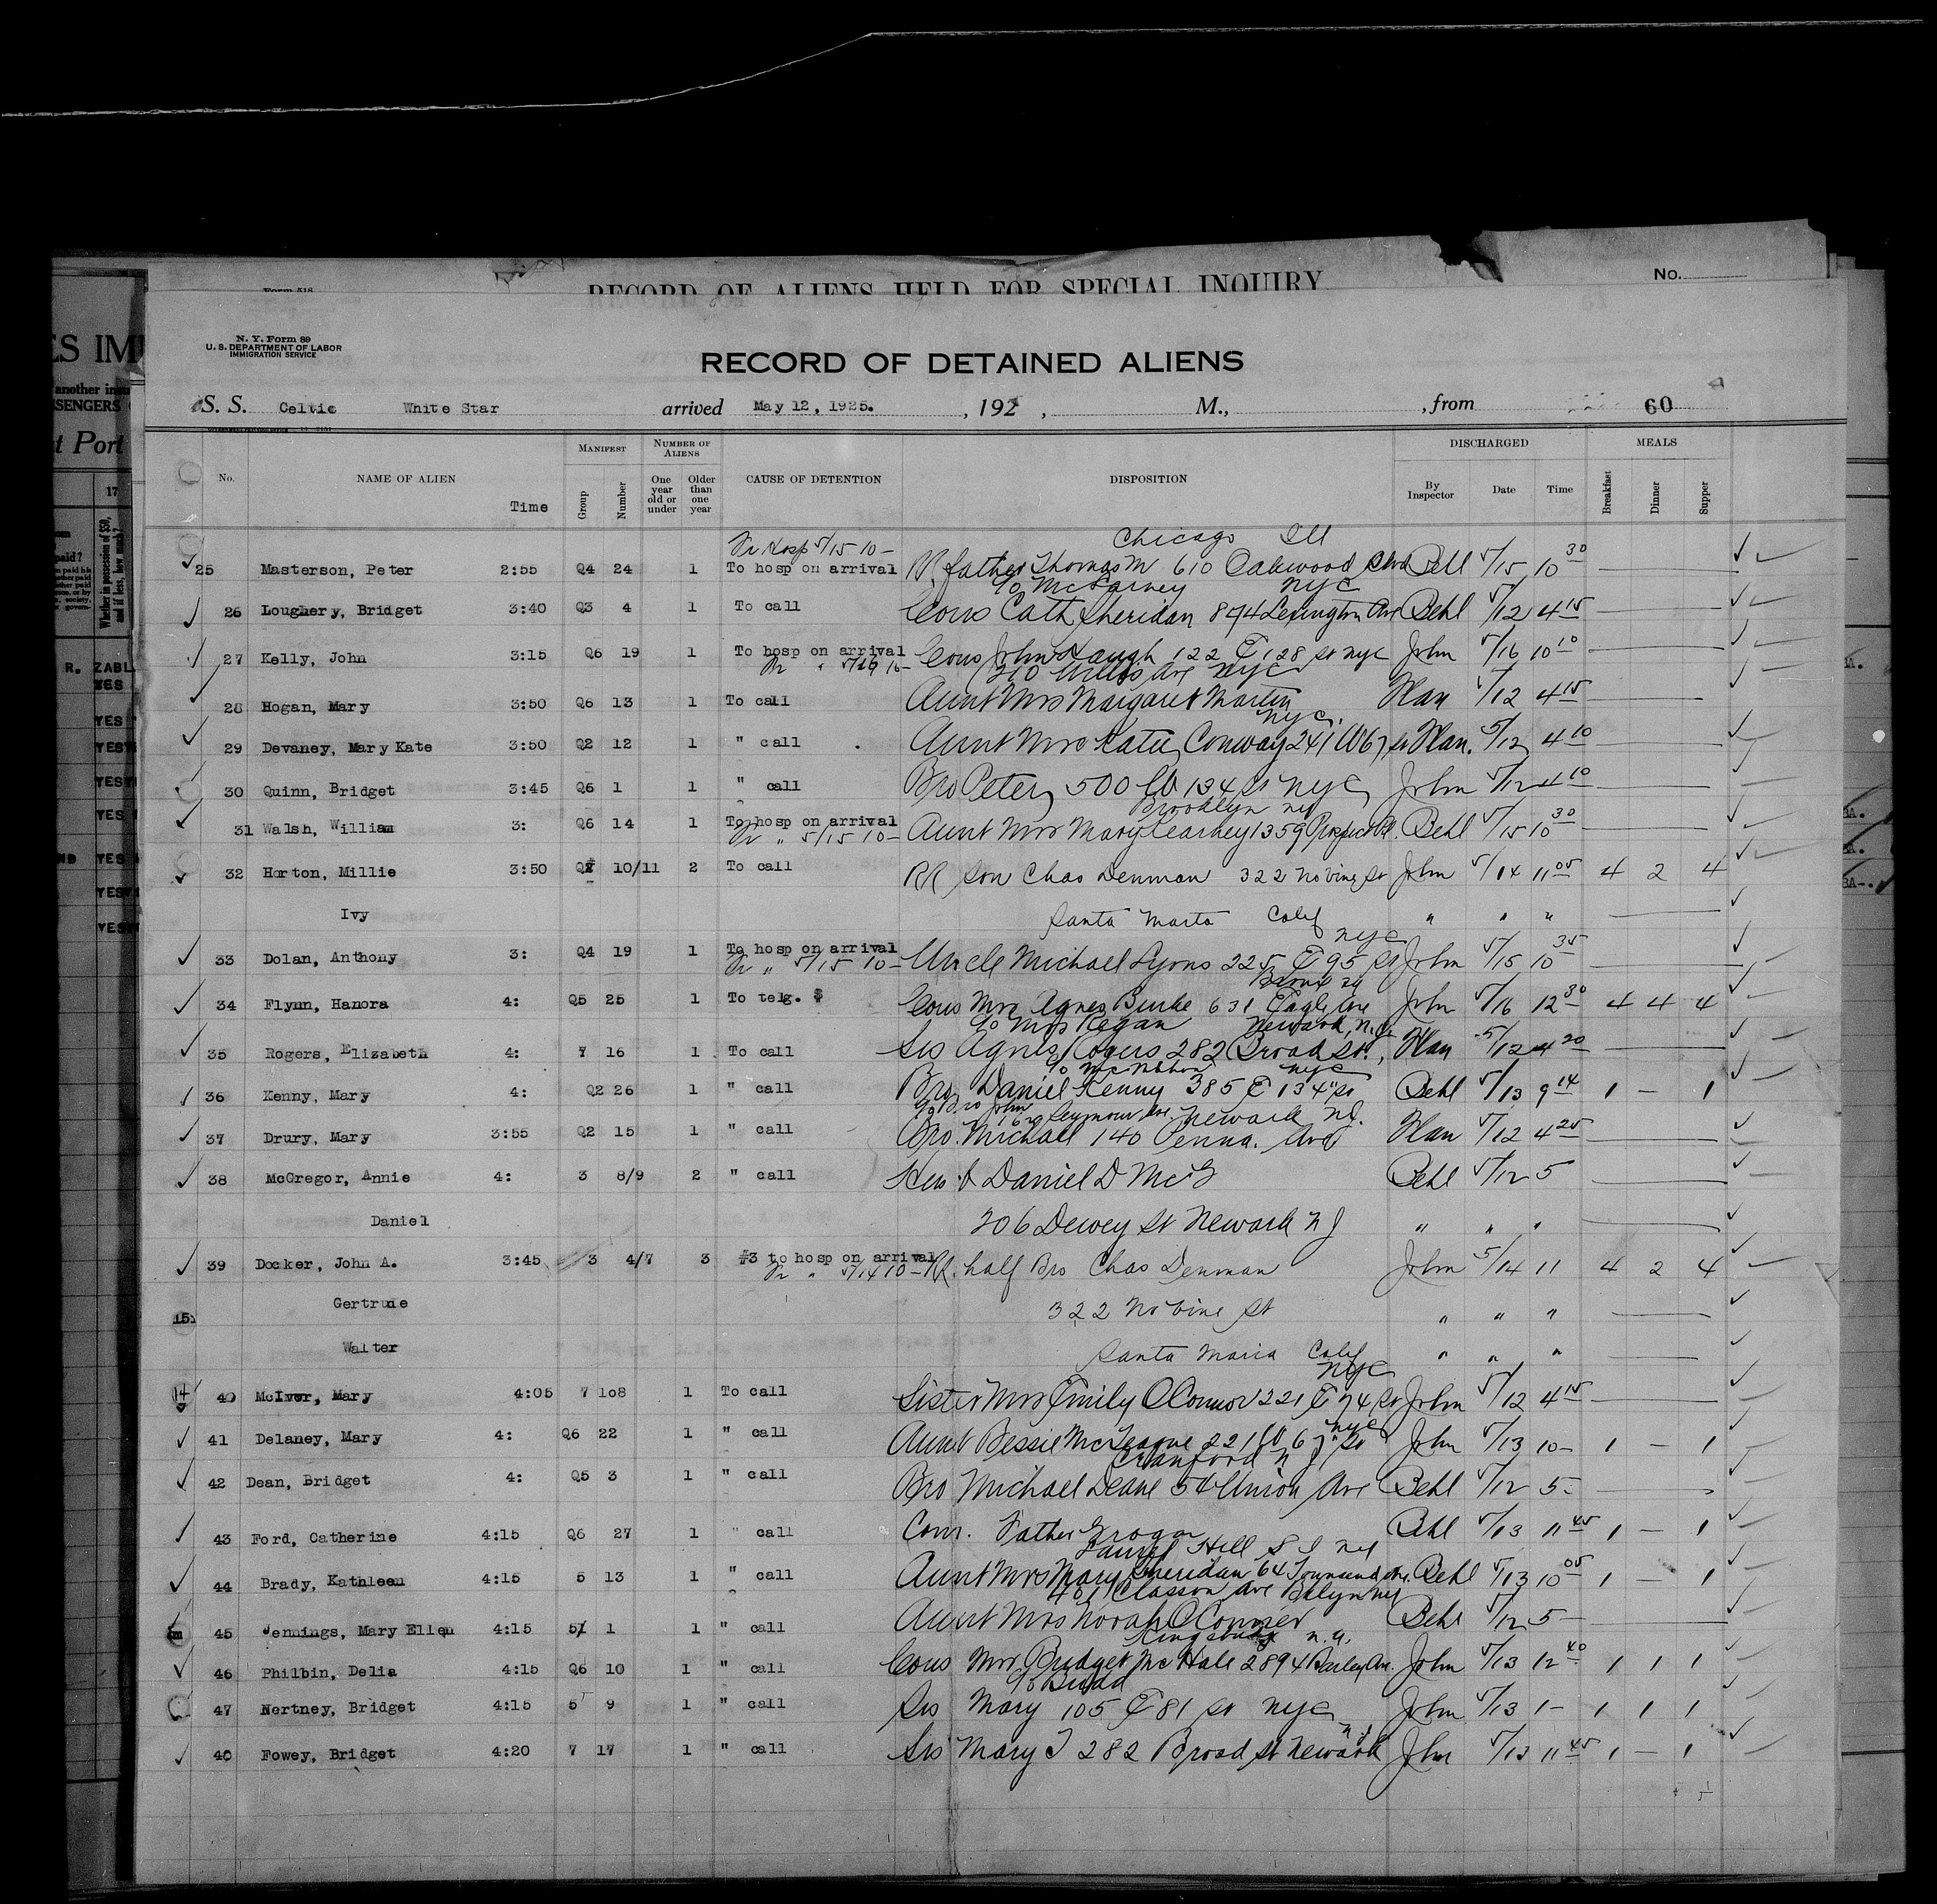 RECORD OF ALIENS HELD FOR SPECIAL INQUIRY
No.
Form 518
N. Y. Form 89
U. S. DEPARTMENT OF LABOR
IMMIGRATION SERVICE
RECORD OF DETAINED ALIENS
S. S. Celtic White Star arrived May 12, 1925. , 192 , M., , from 60
No. NAME OF ALIEN Time MANIFEST Group Number NUMBER OF ALIENS One year old or under Older than one year CAUSE OF DETENTION DISPOSITION DISCHARGED By Inspector Date Time MEALS Breakfast Dinner Supper
Hosp 5/15 10 - Chicago Ill
25 Masterson, Peter 2:55 Q4 24 1 To hosp on arrival RR father Thomas M 610 Oakwood Blvd Behl 5/15 10 30
c/o McLarney NYC
26 Loughery, Bridget 3:40 Q3 4 1 To call Cous Cath Sheridan 874 Lexington Ave Behl 5/12 4 15
27 Kelly, John 3:15 Q6 19 1 To hosp on arrival Cous John Haugh 122 E 128 St NYC John 5/16 10 10
" 5/16 10 - 210 Willis Ave NYC
28 Hogan, Mary 3:50 Q6 13 1 To call Aunt Mrs Margaret Martin 5/12 4 15
NYC.
29 Devaney, Mary Kate 3:50 Q2 12 1 " call Aunt Mrs Katie Conway 241 W 67 St 5/12 4 10
30 Quinn, Bridget 3:45 Q6 1 1 " call Bro Peter 500 W 134 St NYC John 5/12 4 10
Brooklyn NY
31 Walsh, William 3: Q6 14 1 To hosp on arrival Aunt Mrs Mary Kearney 1359 Prospect Pl. Behl 5/15 10 30
" 5/15 10 -
32 Horton, Millie 3:50 Q2 10/11 2 To call RR Son Chas Denman 322 No Vine St John 5/14 11 05 4 2 4
Ivy Santa Marta Calif " " "
NYC
33 Dolan, Anthony 3: Q4 19 1 To hosp on arrival Uncle Michael Lyons 225 E 95 St John 5/15 10 35
" 5/15 10 -
Bronx NY
34 Flynn, Hanora 4: Q5 25 1 To telg. $ Cous Mrs Agnes Burke 631 Eagle Ave John 5/16 12 30 4 4 4
c/o Mrs Regan Newark, N.J.
35 Rogers, Elizabeth 4: 7 16 1 To call Sis Agnes Rogers 282 Broad St., 5/12 4 20
c/o McMahon NYC
36 Kenny, Mary 4: Q2 26 1 " call Bro Daniel Kenny 385 E 134" St Behl 5/13 9 14 1 - 1
c/o Bro John 162 Seymour Ave. Newark NJ.
37 Drury, Mary 3:55 Q2 15 1 " call Bro. Michael 140 Penna. Ave 5/12 4 25
38 McGregor, Annie 4: 3 8/9 2 " call Husb Daniel D McG Behl 5/12 5
Daniel 206 Dewey St Newark N J " " "
39 Docker, John A. 3:45 3 4/7 3 #3 to hosp on arrival RR. half Bro Chas Denman John 5/14 11 4 2 4
" 5/14 10 -
15 Gertrude 322 No Vine St " " "
Walter Santa Maria Calif " " "
NYC
40 McIver, Mary 4:05 7 108 1 To call Sister Mrs Emily OConnor 221 E 74 St John 5/12 4 15
NYC
41 Delaney, Mary 4: Q6 22 1 " call Aunt Bessie McTeague 221 W 67" St John 5/13 10 - 1 - 1
Cranford N J
42 Dean, Bridget 4: Q5 3 1 " call Bro Michael Deane 54 Union Ave Behl 5/12 5 -
43 Ford, Catherine 4:15 Q6 27 1 " call Father Grogan Behl 5/13 11 45 1 - 1
Laurel Hill S I NY
44 Brady, Kathleen 4:15 5 13 1 " call Aunt Mrs Mary Sheridan 64 Townsend Ave. Behl 5/13 10 05 1 - 1
401 Classon Ave Bklyn NY
45 Jennings, Mary Ellen 4:15 5 1 1 " call Aunt Mrs Norah OConner Behl 5/12 5 -
Kingsbridge N.Y.
46 Philbin, Delia 4:15 Q6 10 1 " call Cous Mrs Bridget McHale 2894 Bailey Ave. John 5/13 12 40 1 1 1
47 Nertney, Bridget 4:15 5 9 1 " call Sis Mary 105 E 81 St NYC John 5/13 1 - 1 1 1
N.J.
40 Fowey, Bridget 4:20 7 17 1 " call Sis Mary J 282 Broad St Newark John 5/13 11 45 1 - 1